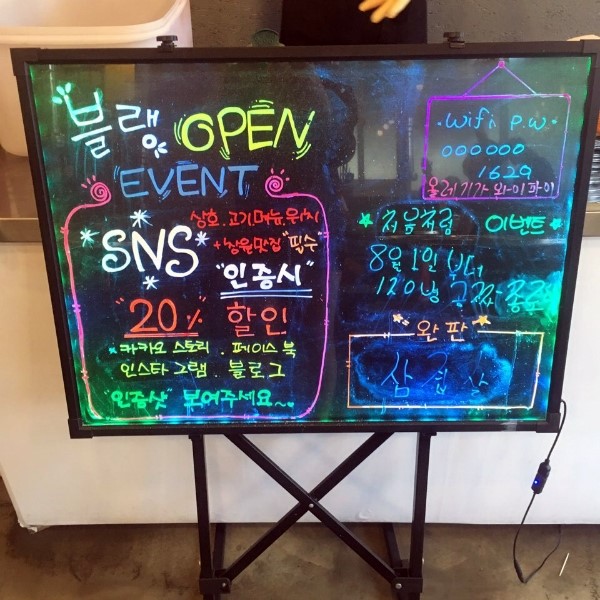 "블랭 OPEN
EVENT
SNS
상호, 고기메뉴, 위치
+창원맛집 "필수"
"인증시"
"20% 할인
카카오 스토리 . 페이스 북
인스타 그램 . 블로그
"인증샷" 보여주세요~
wifi p.w
000000
1629
올레 기가 와이파이
처음처럼 이벤트
8월 1일 부터
120병
완판
삼겹살